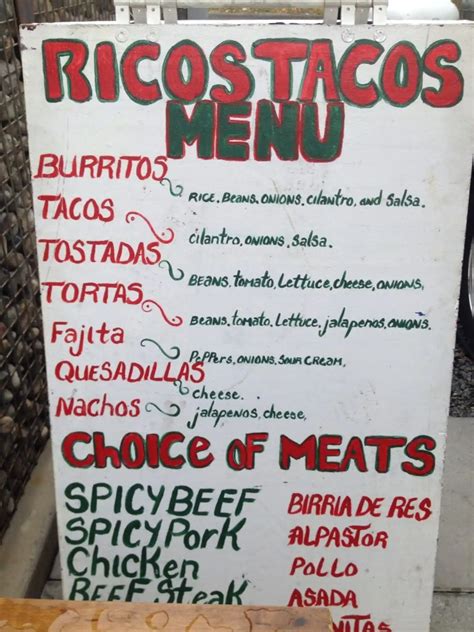 RICOS TACOS
MENU
BURRITOS
RICE, BEANS, ONIONS, cilantro, and SALSA.
TACOS
cilantro, ONIONS, SALSA.
TOSTADAS
BEANS, tomato, Lettuce, cheese, ONIONS,
TORTAS
BEANS, tomato, Lettuce, jalapenos, ONIONS.
Fajita
PePPers, ONIONS, SOUR CREAM,
QUESADILLAS
cheese.
NACHOS
jalapenos, cheese,
CHOiCE OF MEATS
SPICY BEEF
BIRRIA DE RES
SPICY Pork
ALPASTOR
Chicken
POLLO
BEEF Steak
ASADA